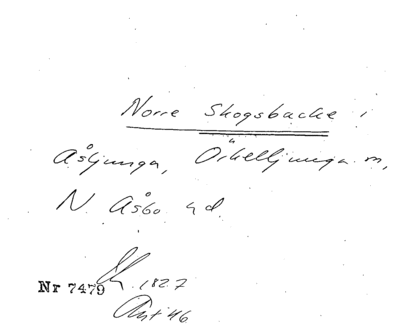 Norre Skogsbacke i
Åsljunga, Örkelljunga sn,
N. Åsbo hd.
1827
Nr 7479
Akt 46